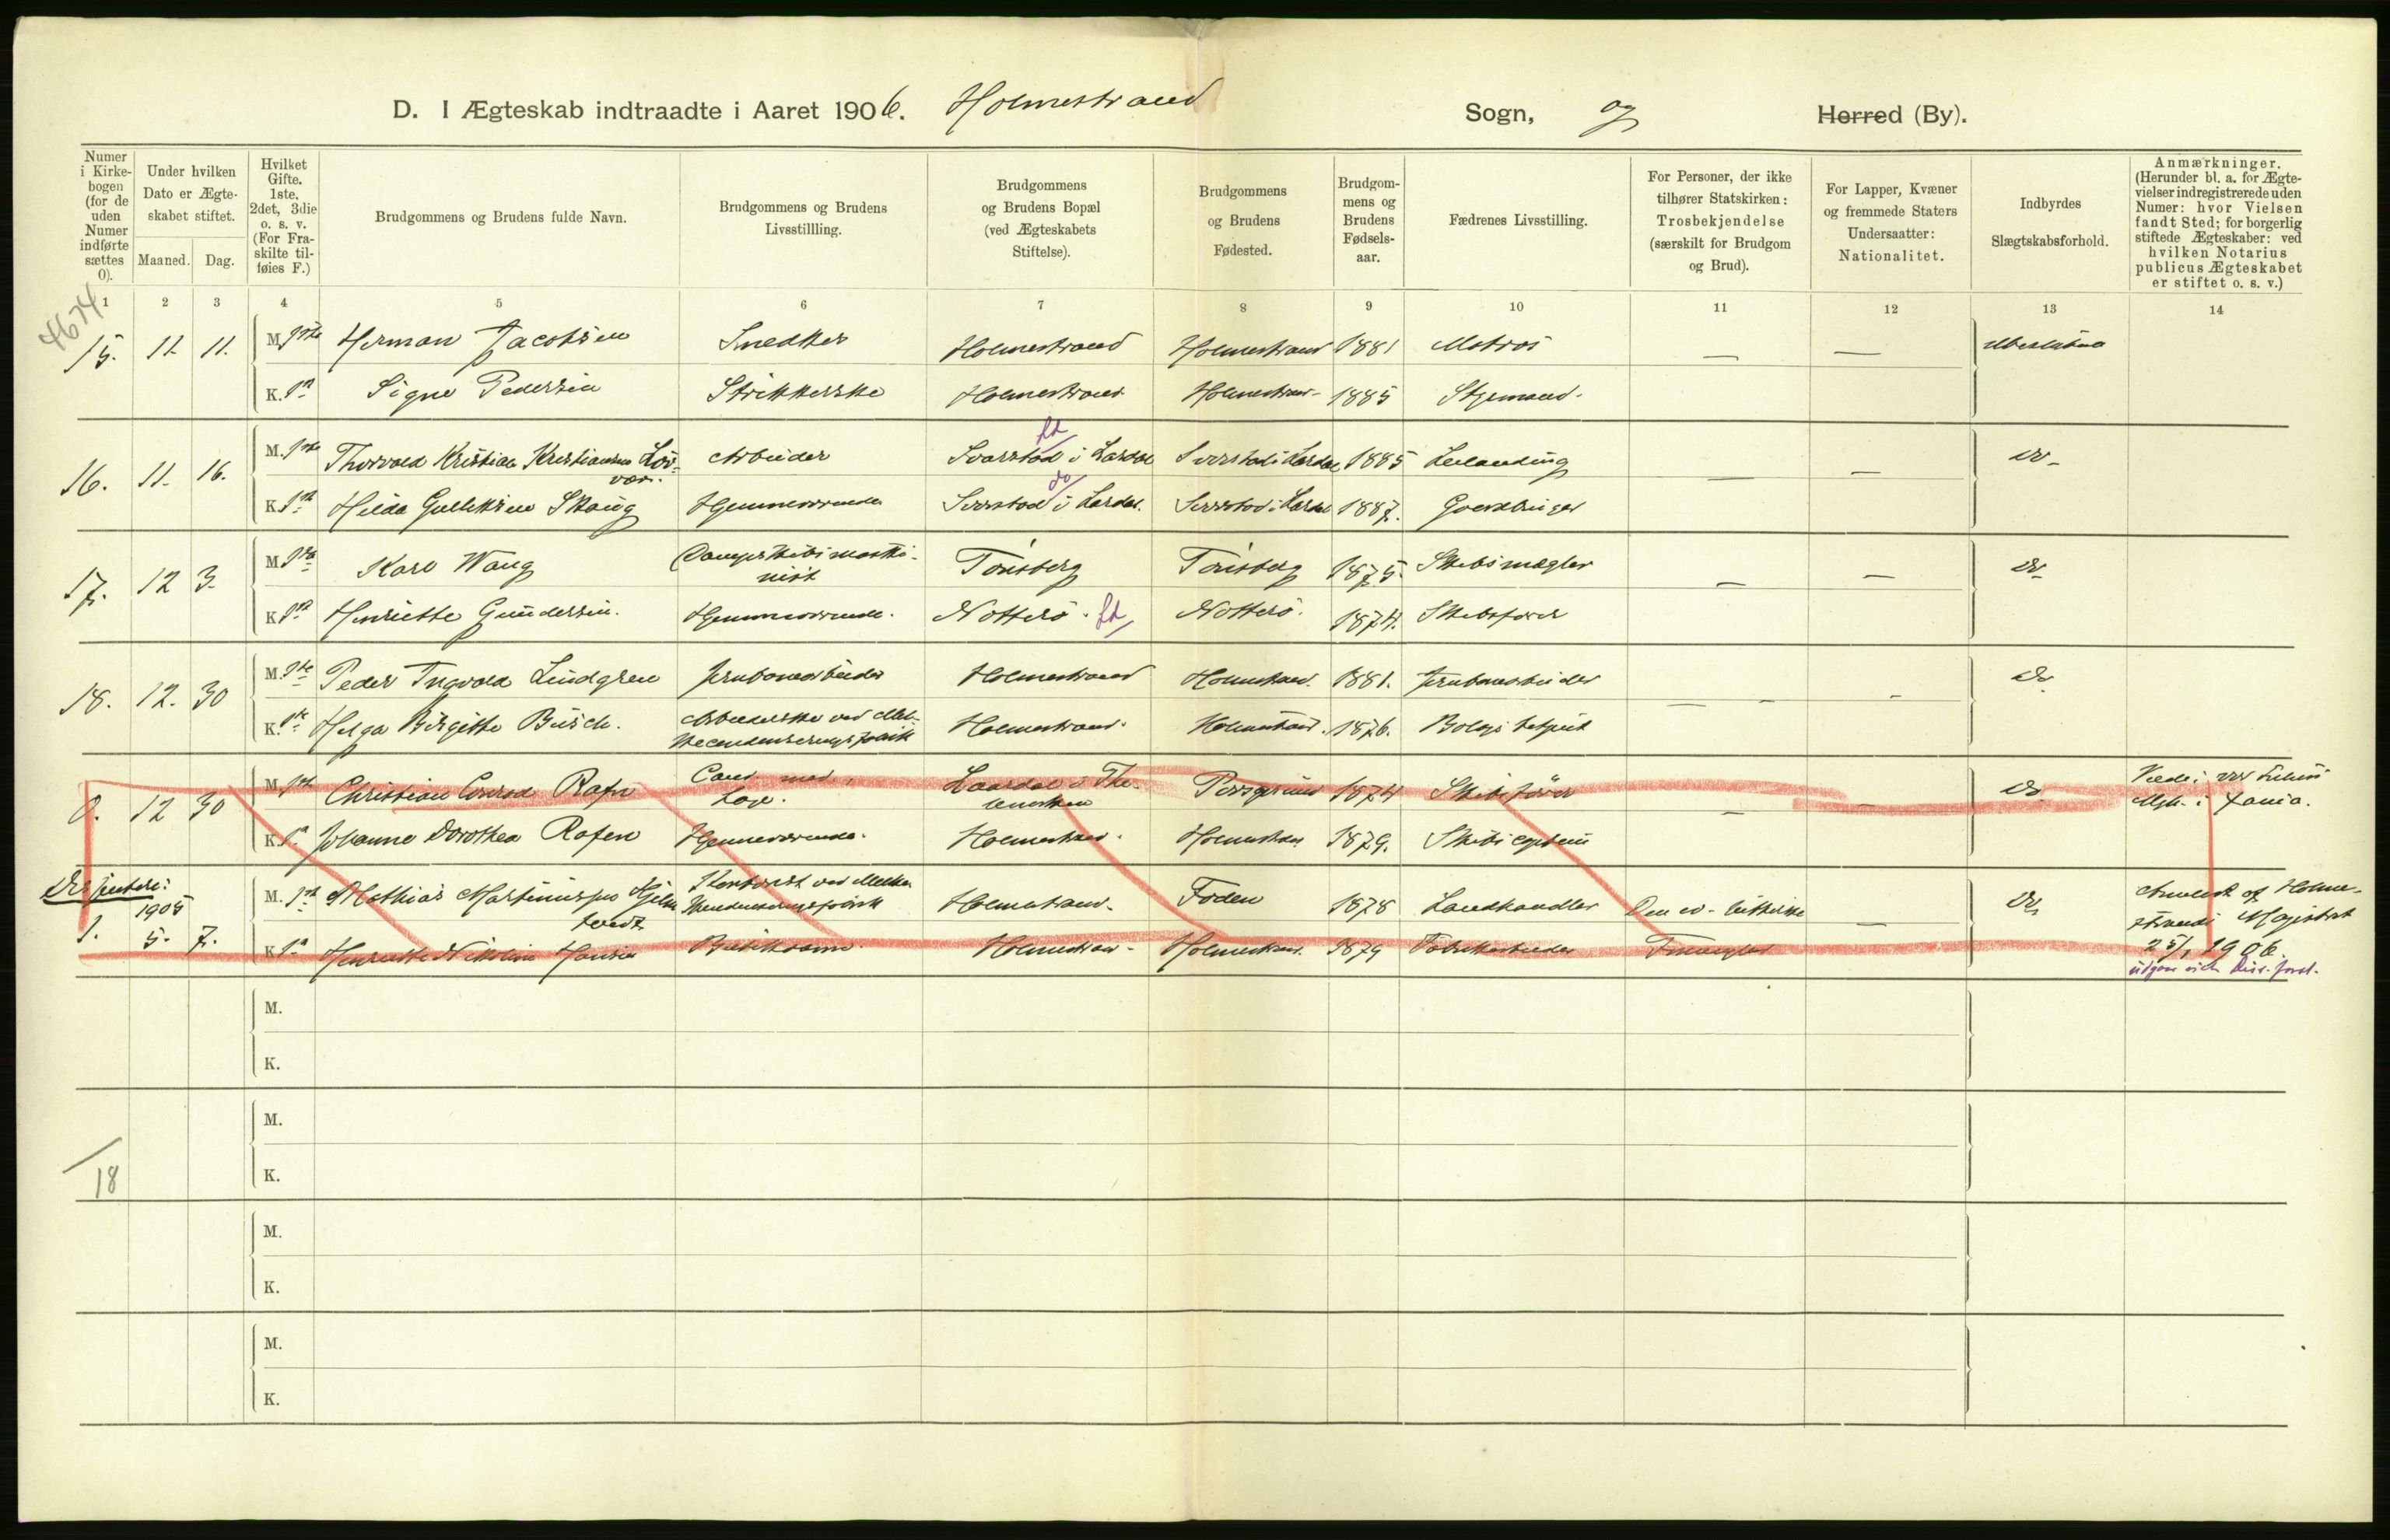 D. I Ægteskab indtraadte i Aaret 1906. Holmestrand Sogn, og Herred (By).
Numer i Kirkebogen (for de uden Numer indførte sættes 0).
Under hvilken Dato er Ægteskabet stiftet.
Maaned. Dag.
Hvilket Gifte. 1ste, 2det, 3die o. s. v. (For Fraskilte tilføies F.)
Brudgommens og Brudens fulde Navn.
Brudgommens og Brudens Livsstillling.
Brudgommens og Brudens Bopæl (ved Ægteskabets Stiftelse).
Brudgommens og Brudens Fødested.
Brudgommens og Brudens Fødselsaar.
Fædrenes Livsstilling.
For Personer, der ikke tilhører Statskirken: Trosbekjendelse (særskilt for Brudgom og Brud).
For Lapper, Kvæner og fremmede Staters Undersaatter: Nationalitet.
Indbyrdes Slægtskabsforhold.
Anmærkninger. (Herunder bl. a. for Ægtevielser indregistrerede uden Numer: hvor Vielsen fandt Sted; for borgerlig stiftede Ægteskaber: ved hvilken Notarius publicus Ægteskabet er stiftet o. s. v.)
1 2 3 4 5 6 7 8 9 10 11 12 13 14
4674
15. 11. 11. M. 1ste Herman Jacobsen Snedker Holmestrand Holmestrand 1881 Matros — — Ubeslægtet
K. 1ste Signe Pedersen Strikkerske Holmestrand Holmestrand 1885 Styrmand.
16. 11. 16. M. 1ste Thorvald Kristian Kristiansen Løvvar. Arbeider Svarstad i Lardal Svarstad i Lardal 1885 Leilending — — do
K. 1ste Hilda Gulliksen Skaug Hjemmeværende Svarstad i Lardal. Svarstad i Lardal 1887. Gaardbruger
17. 12 3. M. 1ste Karl Wang Dampskibsmaskinist Tønsberg Tønsberg 1875. Skibsmægler — — do
K. 1ste Henriette Gundersen. Hjemmeværende. Nøtterø. Ld Nøtterø. 1874. Skibsfører
18. 12. 30 M. 1ste Peder Ingvald Lindgren Jernbanearbeider Holmestrand Holmestrand. 1881. Jernbanearbeider — — do
K. 1ste Helga Birgitte Busch. Arbeiderske ved Melkecondenseringsfabrik Holmestrand. Holmestrand. 1876.
0. 12 30 M. 1ste Christian Conrad Rafn Cand. med., Læge. Laardal i Thelemarken Porsgrund 1874 Skibsfører — — do
K. 1ste Johanne Dorothea Rafen Hjemmeværende. Holmestrand. Holmestrand 1879. Skibscaptein
Dissentere:
1905
1. 5. 7. M. 1ste Mathias Martinius Hjelmtvedt Kontorist ved Melkekondenseringsfabrik Holmestrand. Foden 1878 Landhandler Den ev. lutherske — do Anmeldt af Holmestrands Magistrat
K. 1ste Henriette Nikoline Hansen Butikdame. Holmestrand Holmestrand. 1879 Fabrikarbeider 25/1 1906.
M.
K.
M.
K.
18
M.
K.
M.
K.